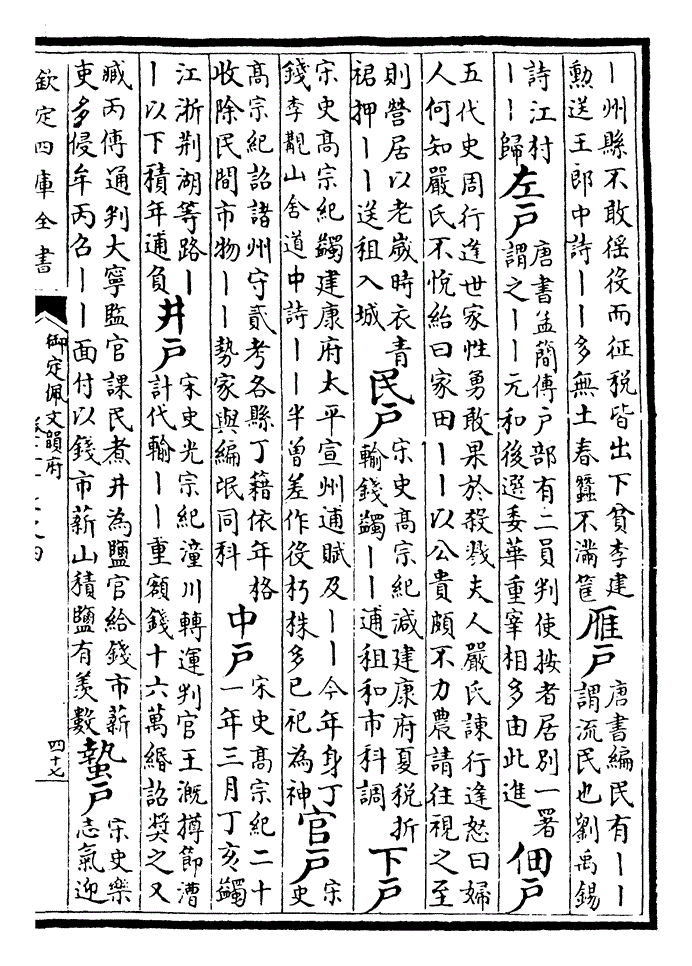 ｜州縣不敢徭役而征税皆出下貧李建
勳送王郎中詩｜｜多無土春蠶不滿筐
雁戶
唐書編民有｜｜
謂流民也劉禹錫
詩江村
｜｜歸
左戶
唐書孟簡傳戶部有二員判使按者居別一署
謂之｜｜元和後選委華重宰相多由此進
佃戶
五代史周行逢世家性勇敢果於殺戮夫人嚴氏諫行逢怒曰婦
人何知嚴氏不悅紿曰家田｜｜以公貴頗不力農請往視之至
則營居以老歲時衣青
裙押｜｜送租入城
民戶
宋史髙宗紀減建康府夏税折
輸錢蠲｜｜逋租和市科調
下戶
宋史髙宗紀蠲建康府太平宣州逋賦及｜｜今年身丁
錢李覯山舍道中詩｜｜半曾差作役朽株多已祀為神
官戶
宋
史
髙宗紀詔諸州守貳考各縣丁籍依年格
收除民間市物｜｜勢家與編氓同科
中戶
宋史髙宗紀二十
一年三月丁亥蠲
江浙荆湖等路｜
｜以下積年逋負
井戶
宋史光宗紀潼川轉運判官王溉撙節漕
計代輸｜｜重額錢十六萬緡詔奬之又
臧丙傳通判大寧監官課民煮井為鹽官給錢市薪
吏多侵牟丙召｜｜面付以錢市薪山積鹽有羨數
蟄戶
宋史樂
志氣迎
欽定四庫全書
御定佩文韻府
四十七